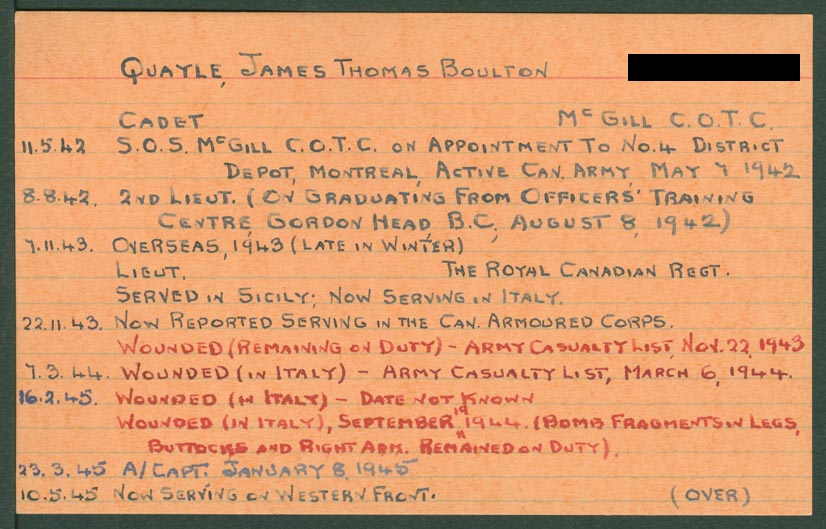 QUAYLE, JAMES THOMAS BOULTON
CADET McGILL C.O.T.C.
11.5.42 S.O.S. McGILL C.O.T.C. ON APPOINTMENT TO NO.4 DISTRICT
DEPOT, MONTREAL, ACTIVE CAN. ARMY, MAY 7 1942
8.8.42. 2ND LIEUT. (ON GRADUATING FROM OFFICERS' TRAINING
CENTRE, GORDON HEAD, B.C., AUGUST 8, 1942)
7.11.43. OVERSEAS, 1943 (LATE IN WINTER)
LIEUT. THE ROYAL CANADIAN REGT.
SERVED IN SICILY; NOW SERVING IN ITALY.
22.11.43. NOW REPORTED SERVING IN THE CAN. ARMOURED CORPS.
WOUNDED (REMAINING ON DUTY) - ARMY CASUALTY LIST, NOV. 22, 1943
7.3.44. WOUNDED (IN ITALY) - ARMY CASUALTY LIST, MARCH 6, 1944.
16.2.45. WOUNDED (IN ITALY) - DATE NOT KNOWN
WOUNDED (IN ITALY), SEPTEMBER 19 1944. (BOMB FRAGMENTS IN LEGS,
BUTTOCKS AND RIGHT ARM. REMAINED ON DUTY).
23.3.45 A/CAPT. JANUARY 8, 1945
10.5.45 NOW SERVING ON WESTERN FRONT. (OVER)